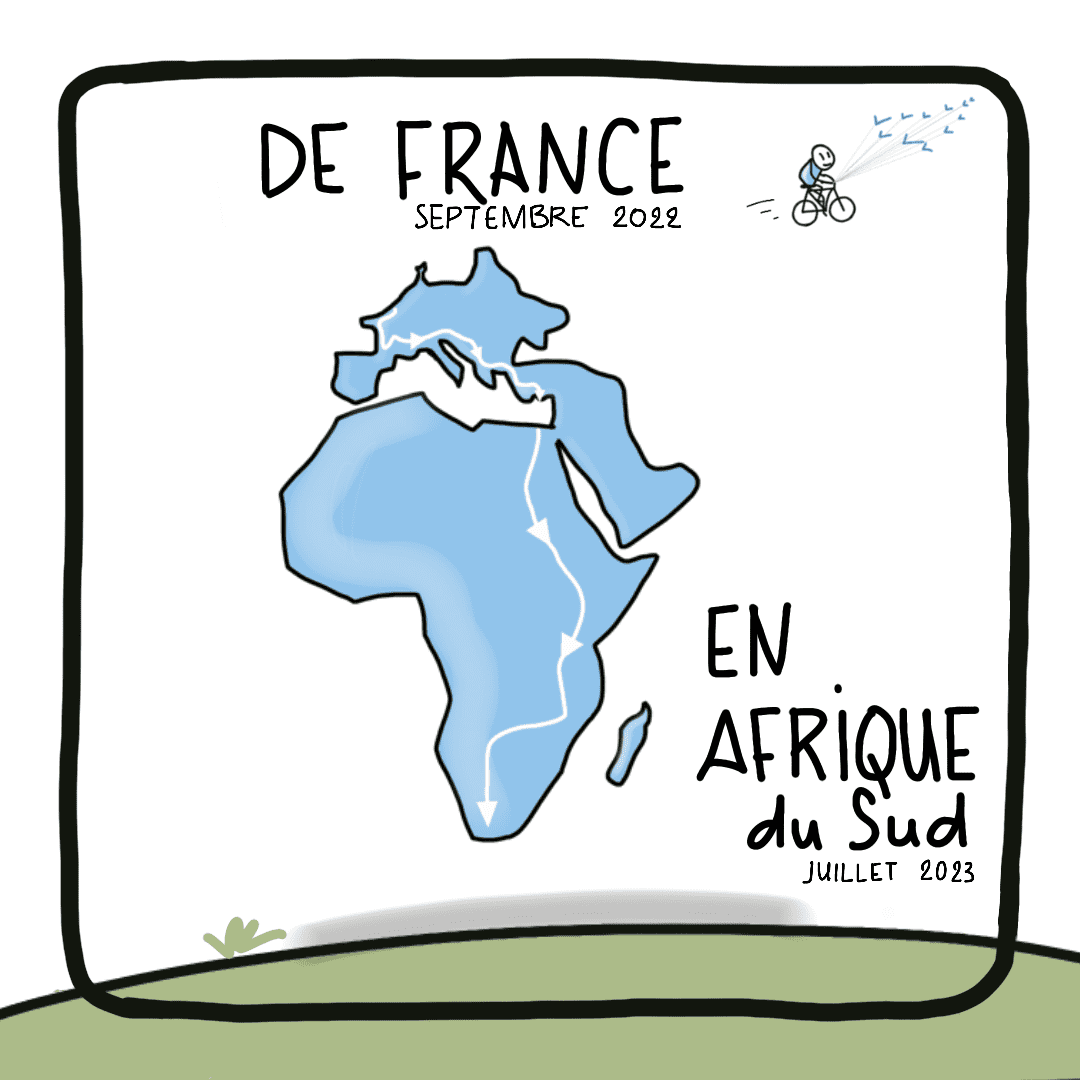 DE FRANCE
SEPTEMBRE 2022
EN
AFRiQUE
du Sud
JUILLET 2023